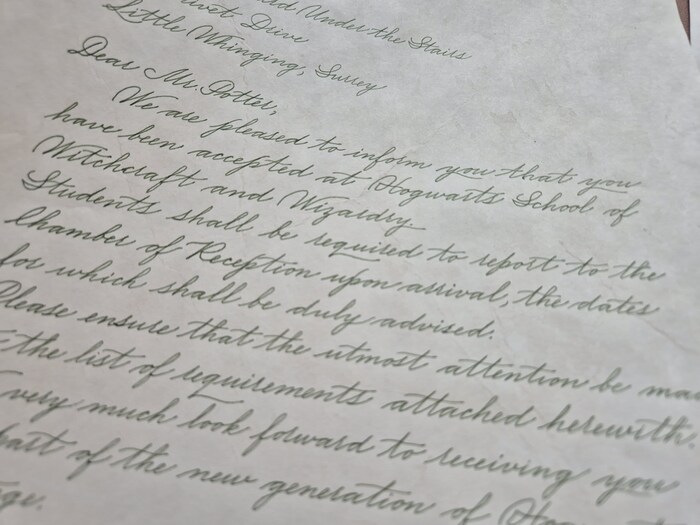 Under the Stairs
Drive
Little Whinging, Surrey
Dear Mr. Potter,
We are pleased to inform you that you
have been accepted at Hogwarts School of
Witchcraft and Wizardry.
Students shall be required to report to the
Chamber of Reception upon arrival, the dates
for which shall be duly advised.
Please ensure that the utmost attention be
the list of requirements attached herewith.
very much look forward to receiving you
part of the new generation of